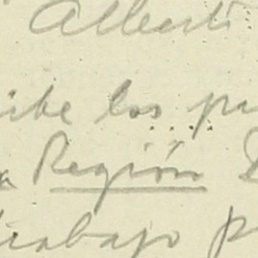 Alberti
ibe los pr
a Región D
trabajo p